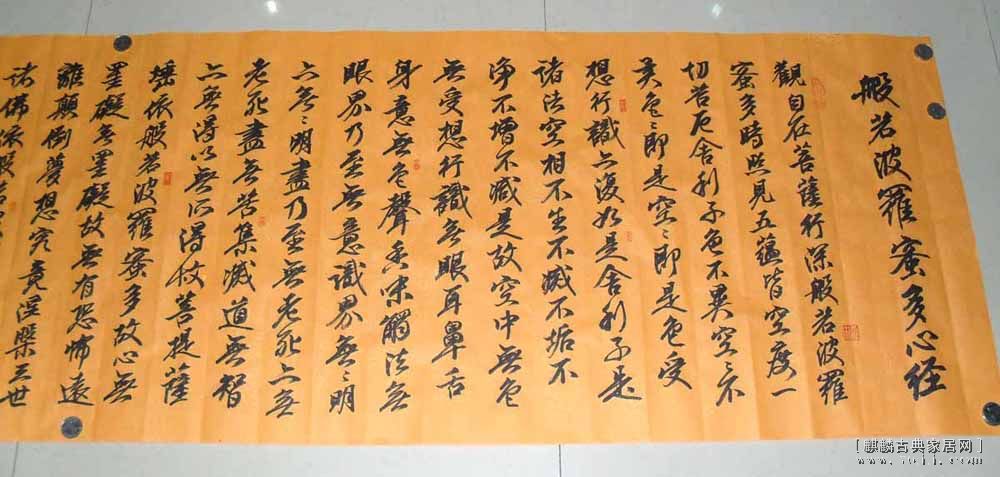 般若波羅蜜多心经
觀自在菩薩行深般若波羅
蜜多時照見五蕴皆空度一
切苦厄舍利子色不異空〻不
異色〻即是空〻即是色受
想行識亦復如是舍利子是
诸法空相不生不滅不垢不
净不增不减是故空中無色
无受想行識无眼耳鼻舌
身意无色聲香味觸法无
眼界乃至无意識界無〻明
亦无〻明盡乃至無老死亦无
老死盡无苦集滅道無智
亦無得以無所得故菩提薩
埵依般若波羅蜜多故心無
罣礙无罣礙故無有恐怖遠
離顛倒夢想究竟涅槃三世
诸佛依般若
[麒麟古典家居网]